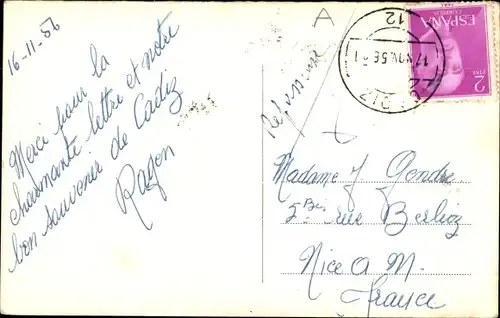 16-11-56
Merci pour la
charmante lettre et notre
bon souvenir de Cadiz
A
12
17 NOV. 56
ESPAÑA
CORREOS
2
PTAS
Madame J. Gendre
5 Bis rue Berlioz
Nice A. M.
France